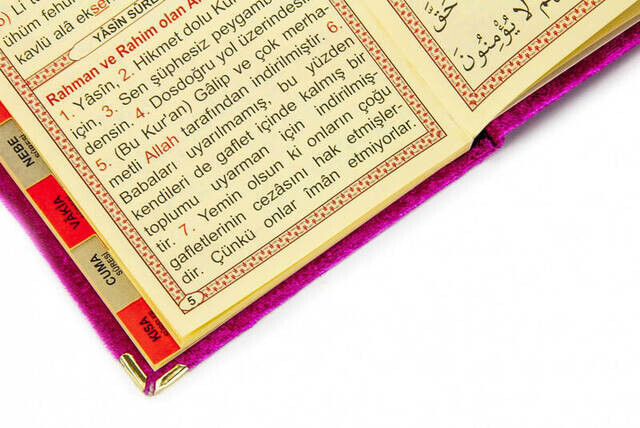 5) Lî t
ühüm fehü
kavlü alâ ek
YÂSİN SÛR
Rahman ve Rahim olan A
1. Yâsîn. 2. Hikmet dolu Kur
için, 3. Sen şüphesiz peygam
densin. 4. Dosdoğru yol üzerindesi
5. (Bu Kur'an) Gâlip ve çok merha-
metli Allah tarafından indirilmiştir. 6.
Babaları uyarılmamış, bu yüzden
kendileri de gaflet içinde kalmış bir
toplumu uyarman için indirilmiş-
tir. 7. Yemin olsun ki onların çoğu
gafletlerinin cezâsını hak etmişler-
dir. Çünkü onlar îmân etmiyorlar.
5
حَقَّ
لَا يُؤْمِنُونَ
NEBE
SÛRESİ
VÂKIA
CUMA
SÛRESİ
KISA